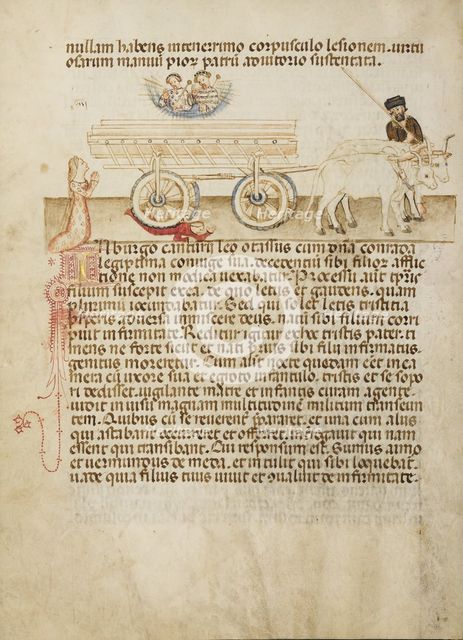 nullam habens intenerrimo corpusculo lesionem. virtu
osarum manuū pioꝝ patrū adiutorio sustentata.
Heritage Heritage
In burgo leo otassus cum dn̄a conrada
legiptima coniuge sua. decedentiū sibi filioꝝ afflic
tione non modica vexabatur. Processu aut tp̄ris
filium suscepit ex ea. de quo letus et gaudens. quam
plurimū iocundabatur. Sed qui solet letis tristitia
adversa inmiscere deus. nati sibi filium corri
puit infirmitate. Redditur igitur ex hoc tristis pater. ti
mens ne forte sicut et nati prius sibi filii infirmatus
genitus moreretur. Cum aut nocte quadam eet in ca
mera cū uxore sua et egroto infantulo. tristis et se sopo
ri dedisset. vigilante matre et infantis curam agente.
vidit in visu magnam multitudinem militum transeun
tem. Quibus cū se pararet. et una cum aliis
qui astabant et interrogavit qui nam
essent qui transibant. Cui responsum est. Sumus aimo
et vermundus de meda. et intulit qui sibi loquebat
vade quia filius tuus vivit et de infirmitate.